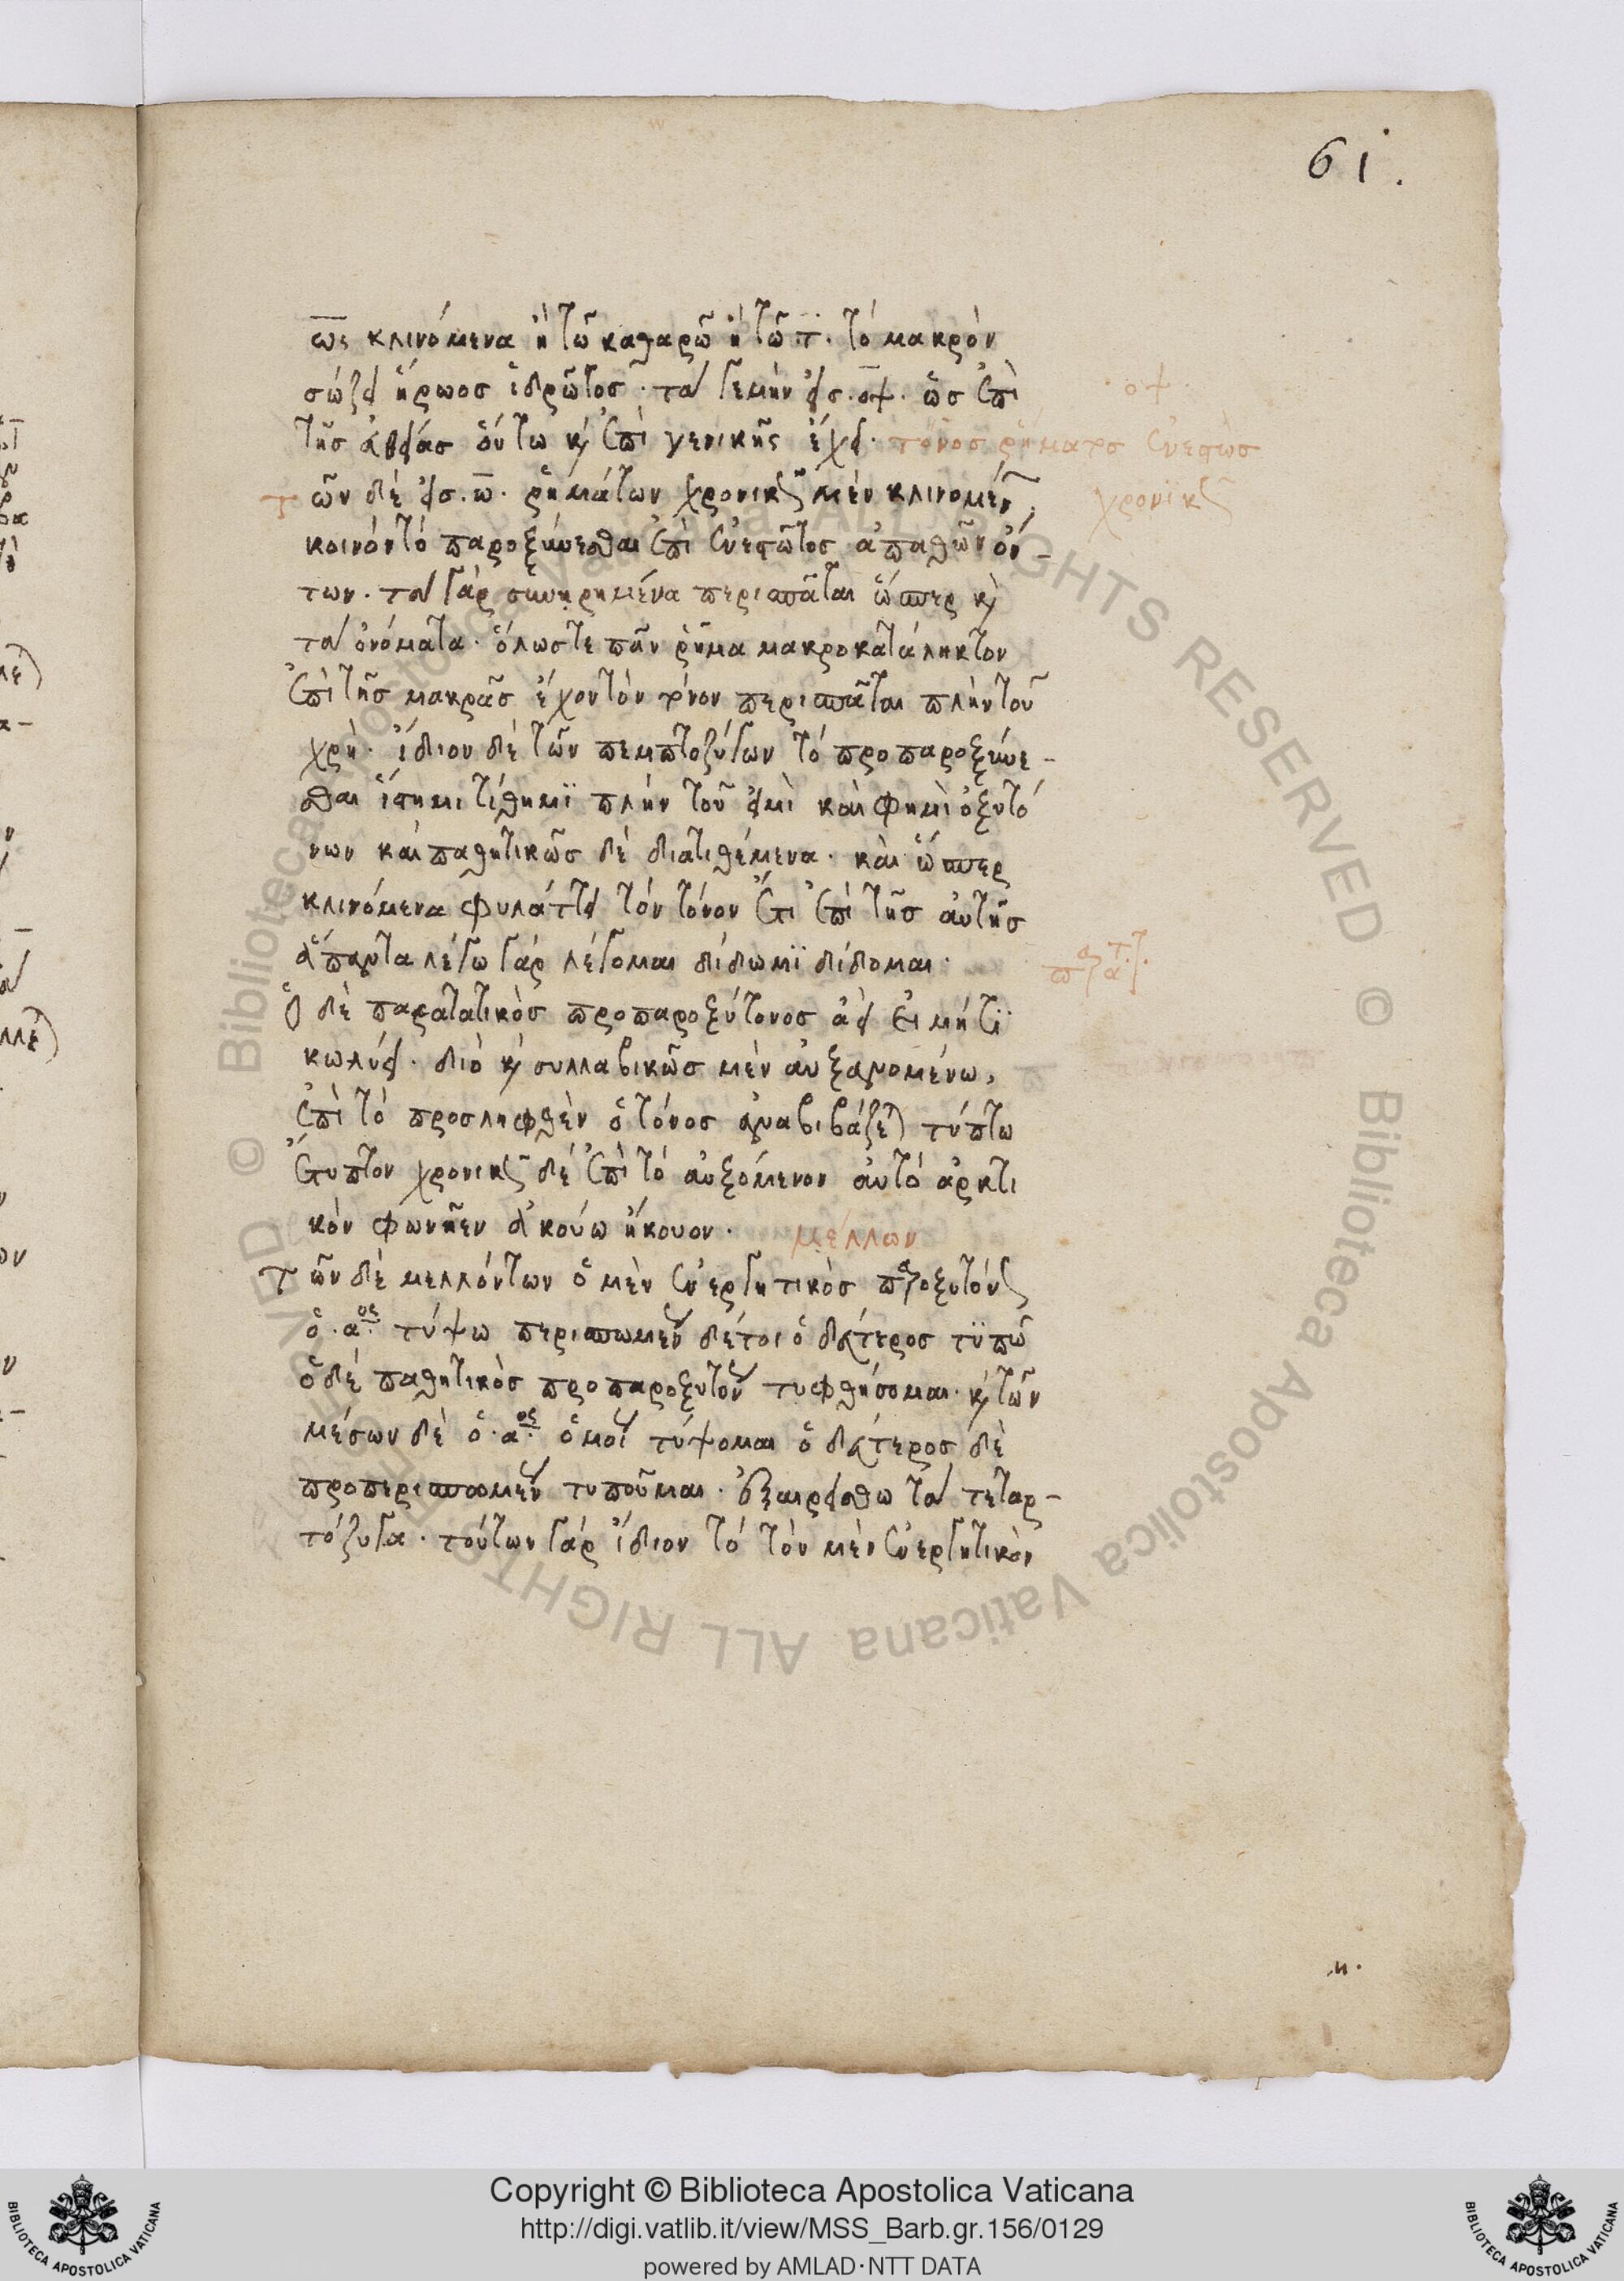 61.
ως κλινόμενα ἢ τῶ καθαρῶ ἢ τῶ τ. τὸ μακρὸν
σώζει ἥρωος ἱδρῶτος. τὰ γε μὴν εἰς οψ. ὡς ἐπὶ
οψ.
τῆς εὐθείας οὕτω κ̀ ἐπὶ γενικῆς ἔχει. τόνος ῥήματος ἐνεστὼς
τῶν δὲ εἰς ω. ῥημάτων χρονικῶς μὲν κλινομέν
χρονϊκῶς
κοινὸν τὸ παροξύνεσθαι ἐπὶ ἐνεστῶτος ἀπαθῶν ὄν-
των. τὰ γὰρ συνῃρημένα περισπᾶται ὥσπερ κ̀
τὰ ὀνόματα. ὅλως τε πᾶν ῥῆμα μακροκατάληκτον
ἐπὶ τῆς μακρᾶς ἔχον τὸν τόνον περισπᾶται πλὴν τοῦ
χρή. ἴδιον δὲ τῶν πεμπτοζύγων τὸ προπαροξύνε-
σθαι ἵστημι τίθημϊ πλὴν τοῦ εἰμὶ καὶ φημὶ ὀξυτό
νων καὶ παθητικῶς δὲ διατιθέμενα. καὶ ὥσπερ
κλινόμενα φυλάττει τὸν τόνον ἔτι ἐπὶ τῆς αὐτῆς
ἅπαντα λέγω γὰρ λέγομαι δίδωμϊ δίδομαι.
ὁ δὲ παρατατικὸς προπαροξύτονος ἀεὶ εἰ μή τϊ
κωλύει. διὸ κ̀ συλλαβικῶς μὲν αὐξανομένω,
ἐπὶ τὸ προσληφθὲν ὁ τόνος ἀναβιβάζεται τύπτω
ἔτυπτον χρονικῶς δὲ ἐπὶ τὸ αὐξόμενον αὐτὸ ἀρκτι
κὸν φωνῆεν ἀκούω ἤκουον. μέλλων
τῶν δὲ μελλόντων ὁ μὲν ἐνεργητικὸς παροξυτόνως
ὁ. α.ος τύψω περισπωμεν δέ τοι ὁ δεύτερος τϋπῶ
ὁ δὲ παθητικὸς προπαροξυτον τυφθήσομαι. κ̀ τῶν
μέσων δὲ ὁ. α.ος ὁμοί τύψομαι ὁ δεύτερος δὲ
προπερισπωμεν τυποῦμαι. ἐξαιρείσθω τὰ τεταρ-
τόζυγα. τούτων γὰρ ἴδιον τὸ τὸν μὲν ἐνεργητικὸν
η.
Copyright © Biblioteca Apostolica Vaticana
http://digi.vatlib.it/view/MSS_Barb.gr.156/0129
powered by AMLAD·NTT DATA
BIBLIOTECA APOSTOLICA VATICANA
BIBLIOTECA APOSTOLICA VATICANA
© Biblioteca Apostolica Vaticana ALL RIGHTS RESERVED © Biblioteca Apostolica Vaticana ALL RIGHTS RESERVED